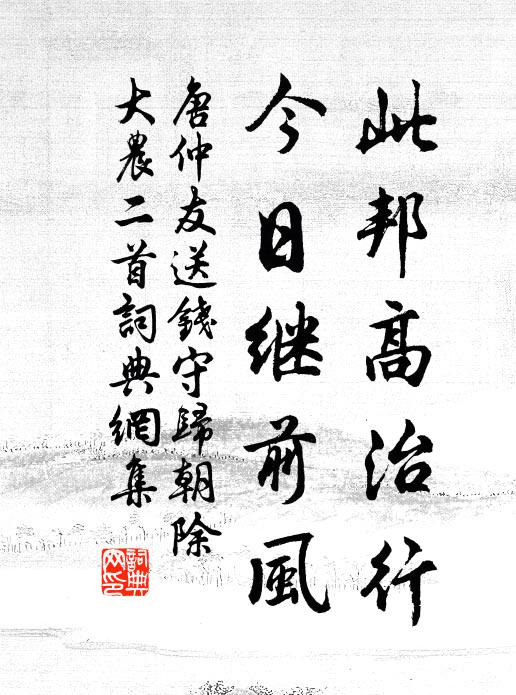 此邦高治行
今日继前風
唐仲友送錢守歸朝除
大農二首詞典網集
詞典
网印